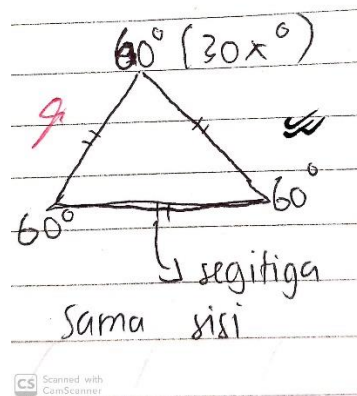 60° (30x°)
60° 60°
segitiga
sama sisi
CS Scanned with
CamScanner